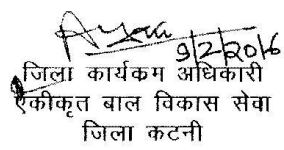 9/2/2016
जिला कार्यकम अधिकारी
एकीकृत बाल विकास सेवा
जिला कटनी